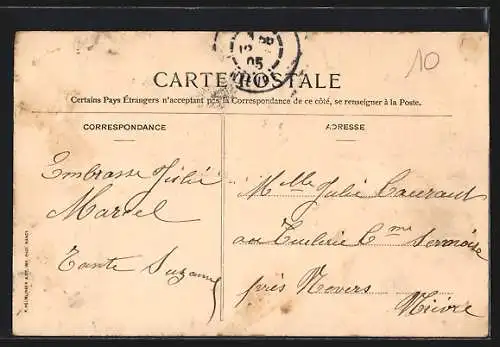 10
05
CARTE POSTALE
Certains Pays Étrangers n'acceptant pas la Correspondance de ce côté, se renseigner à la Poste.
CORRESPONDANCE
ADRESSE
Embrasse Julie
Marcel
Tante Suzanne
Mlle Julie
au Tuilerie Cme Sermoise
près Nevers
Nièvre